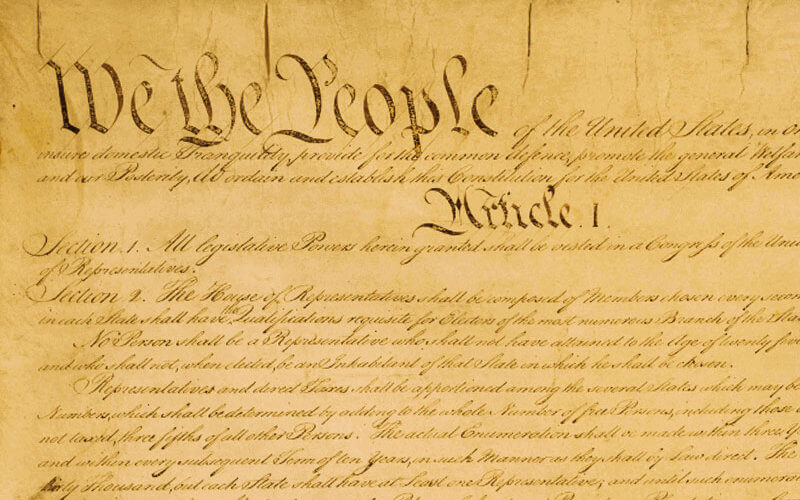 We the People of the United States, in Or
insure domestic Tranquility, provide for the common defence, promote the general Welfar
and our Posterity, do ordain and establish this Constitution for the United States of Amer
Article. I.
Section 1. All legislative Powers herein granted shall be vested in a Congress of the Unit
of Representatives.
Section 2. The House of Representatives shall be composed of Members chosen every secon
in each State shall have the Qualifications requisite for Electors of the most numerous Branch of the Stat
No Person shall be a Representative who shall not have attained to the Age of twenty five
and who shall not, when elected, be an Inhabitant of that State in which he shall be chosen.
Representatives and direct Taxes shall be apportioned among the several States which may be
Numbers, which shall be determined by adding to the whole Number of free Persons, including those
not taxed, three fifths of all other Persons. The actual Enumeration shall be made within three Y
and within every subsequent Term of ten Years, in such Manner as they shall by Law direct. The
thirty Thousand, but each State shall have at Least one Representative; and until such enumera